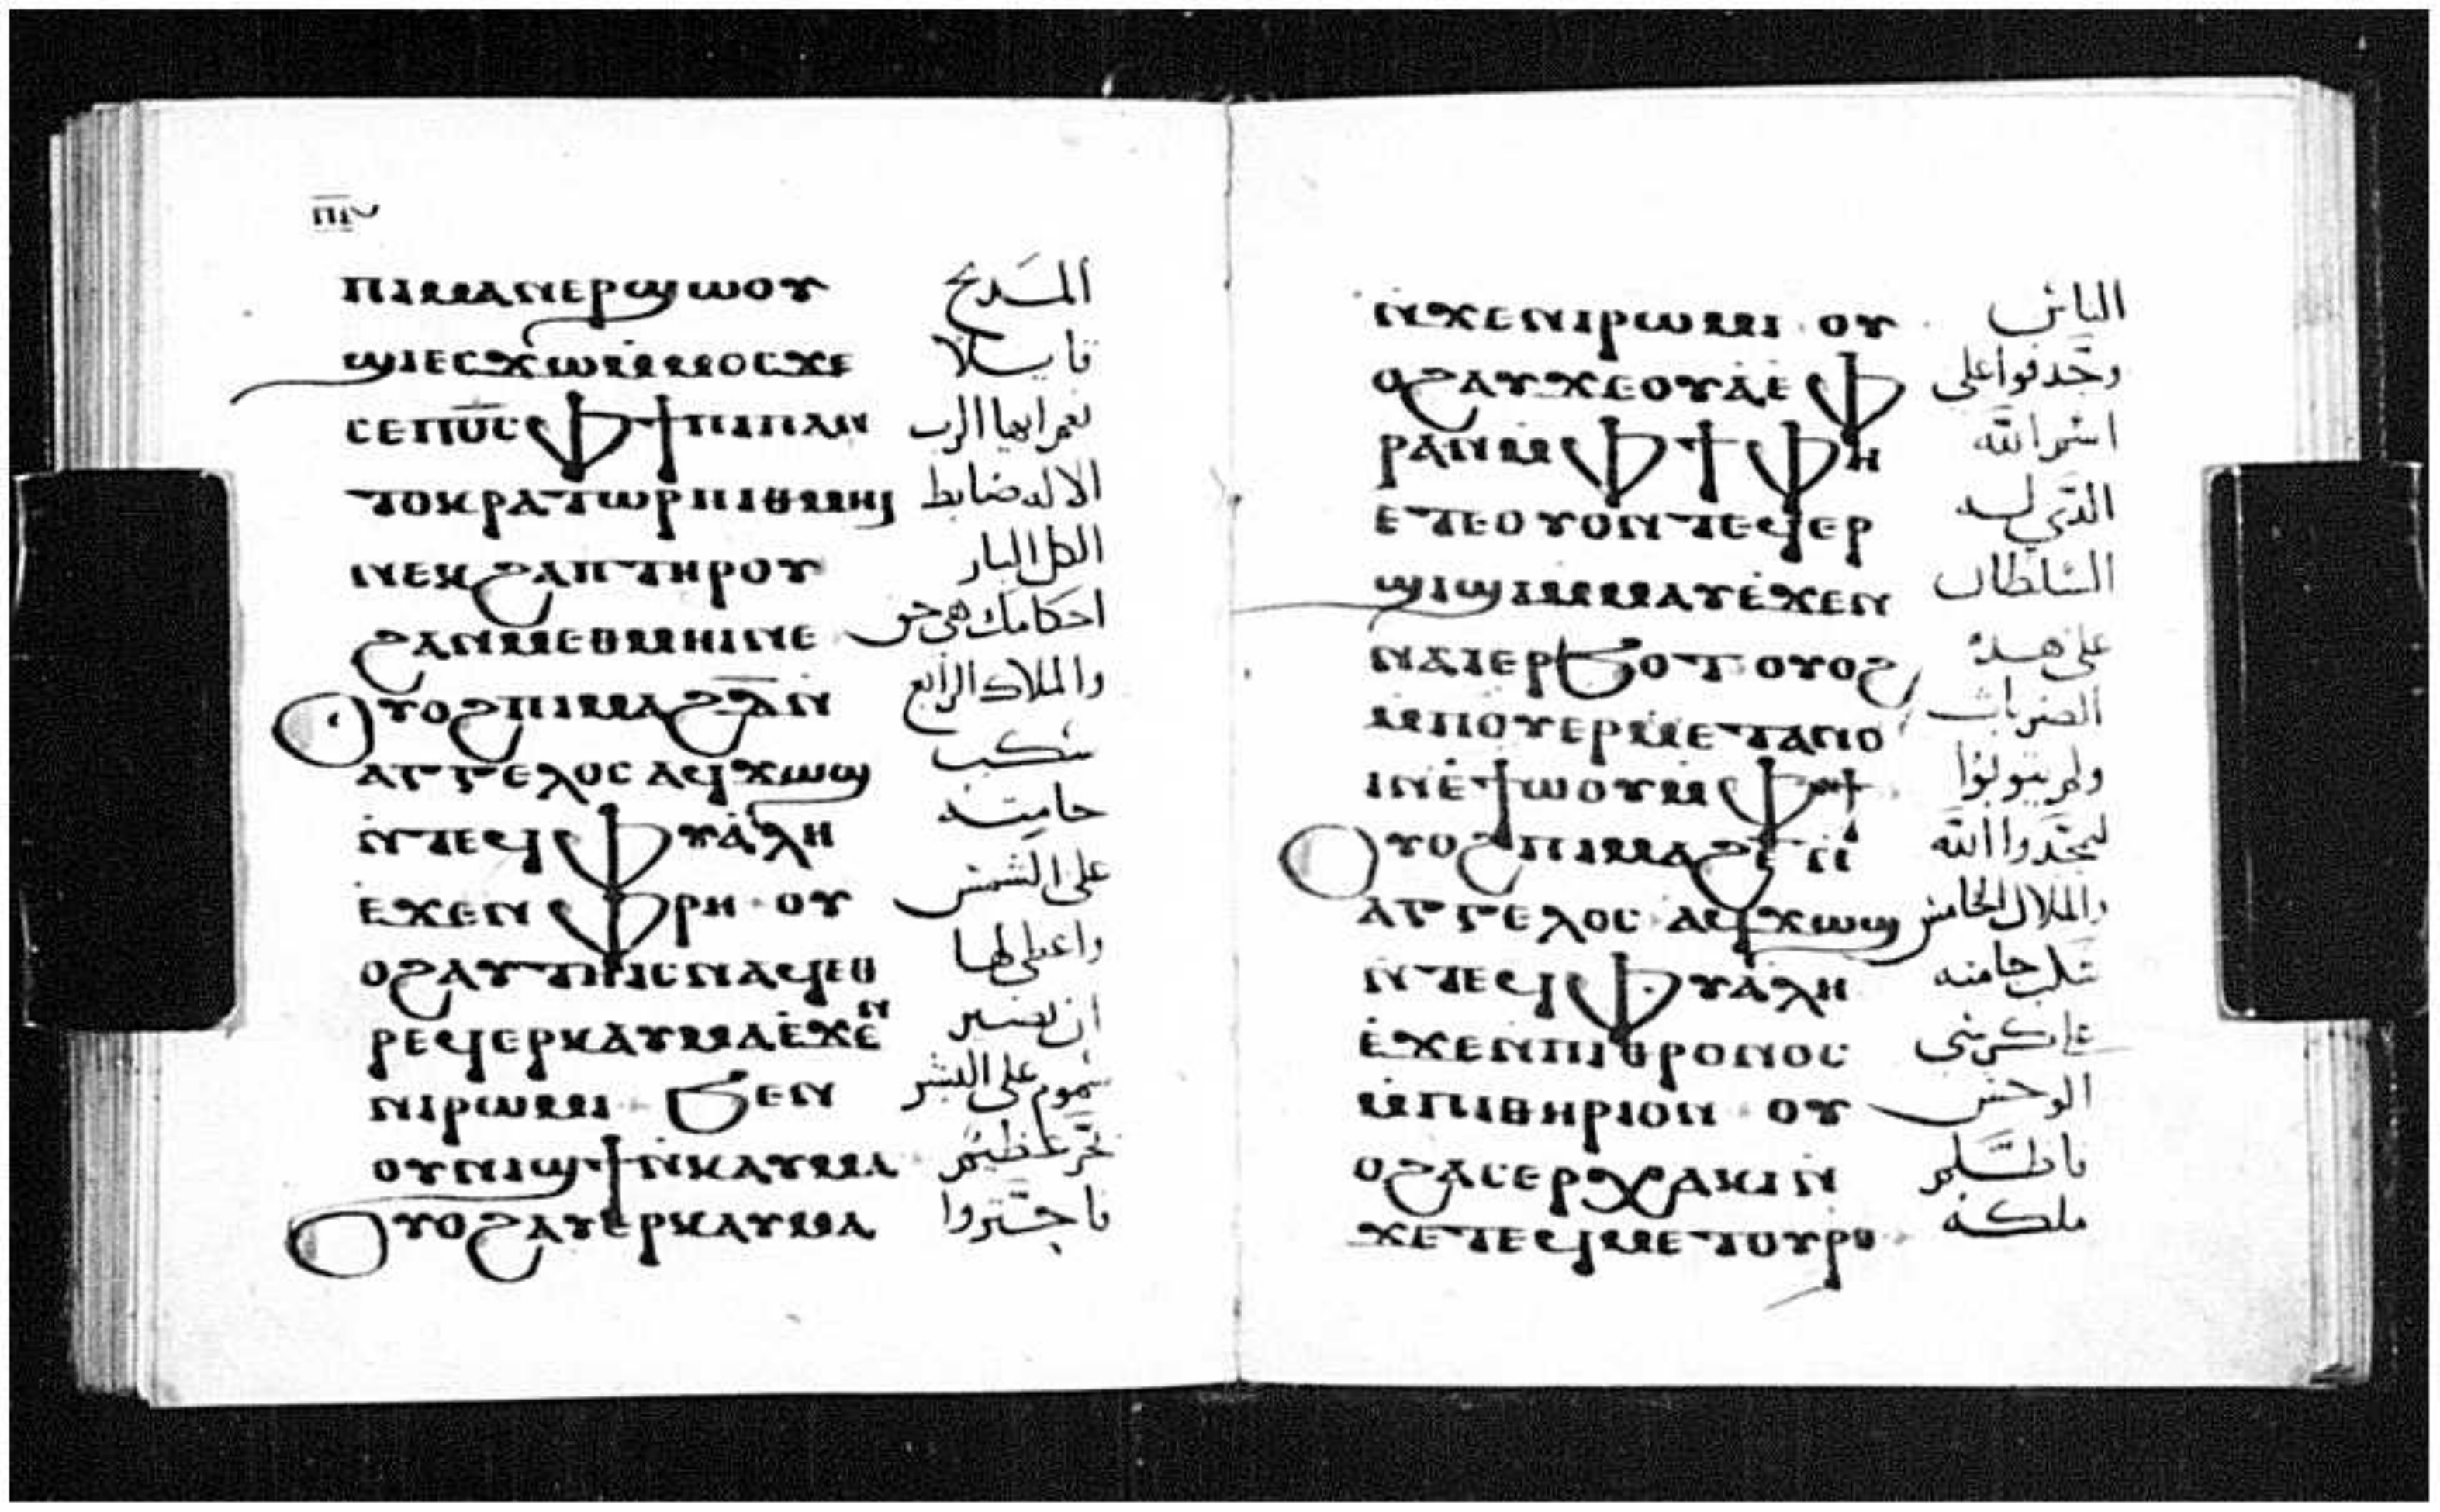 ⲡⲓⲙⲁⲛⲉⲣϣⲱⲟⲩ المدبح
ϣⲓⲉⲥϫⲱⲙ̇ⲙⲟⲥϫⲉ قايلا
ⲥⲉⲡⲟ̅ⲥ̅ⲫϯⲡⲓⲡⲁⲛ نعم ايها الرب
ⲧⲟⲕⲣⲁⲧⲱⲣⲡⲓⲑⲙⲏⲓ الاله ضابط
ⲛⲉⲕϩⲁⲡⲧⲏⲣⲟⲩ الكل البار
ϩⲁⲛⲙⲉⲑⲙⲏⲓⲛⲉ احكامك هى حق
ⲟⲩⲟϩⲡⲓⲙⲁϩⲇ̅ⲛ̀ والملاك الرابع
ⲁⲅⲅⲉⲗⲟⲥ ⲁϥϫⲱϣ سكب
ⲛ̀ⲧⲉϥⲫⲩⲁ̀ⲗⲏ جامته
ⲉ̀ϫⲉⲛⲫⲣⲏ ⲟⲩ على الشمس
ⲟϩⲁⲩⲧⲏⲓⲥⲛⲁϥⲉⲑ واعطى لها
ⲣⲉϥⲉⲣⲕⲁⲩⲙⲁⲉ̀ϫⲉ̀ⲛ ان تصير
ⲛⲓⲣⲱⲙⲓ ϧⲉⲛ سموم على البشر
ⲟⲩⲛⲓϣϯⲛ̀ⲕⲁⲩⲙⲁ بحر عظيم
ⲟⲩⲟϩⲁⲩⲉⲣⲕⲁⲩⲙⲁ فاحتروا
ⲛ̀ϫⲉⲛⲓⲣⲱⲙⲓ ⲟⲩ الناس
ⲟϩⲁⲩϫⲉⲟⲩⲁ̀ⲉ̀ⲫ وجدفوا على
ⲣⲁⲛⲙ̀ⲫϯⲫⲏ اسم الله
ⲉⲧⲉⲟⲩⲟⲛⲧⲉϥⲉⲣ الذي له
ϣⲓϣⲓⲙ̀ⲙⲁⲩⲉ̀ϫⲉⲛ السلطان
ⲛⲁⲓⲉⲣϧⲟⲧ ⲟⲩⲟϩ على هذه
ⲙ̀ⲡⲟⲩⲉⲣⲙⲉⲧⲁⲛⲟ الضربات
ⲓⲛⲉ̀ϯⲱⲟⲩⲙ̀ⲫϯ ولم يتوبوا
ⲟⲩⲟϩⲡⲓⲙⲁϩⲉ̅ⲛ̀ ليمجدوا الله
ⲁⲅⲅⲉⲗⲟⲥ ⲁϥϫⲱϣ والملاك الخامس
ⲛ̀ⲧⲉϥⲫⲩⲁ̀ⲗⲏ سكب جامته
ⲉ̀ϫⲉⲛⲡⲓⲑⲣⲟⲛⲟⲥ على كرسي
ⲙ̀ⲡⲓⲑⲏⲣⲓⲟⲛ ⲟⲩ الوحش
ⲟϩⲁⲥⲉⲣⲭⲁⲕⲓⲛ فاظلم
ϫⲉⲧⲉϥⲙⲉⲧⲟⲩⲣⲟ ملكه